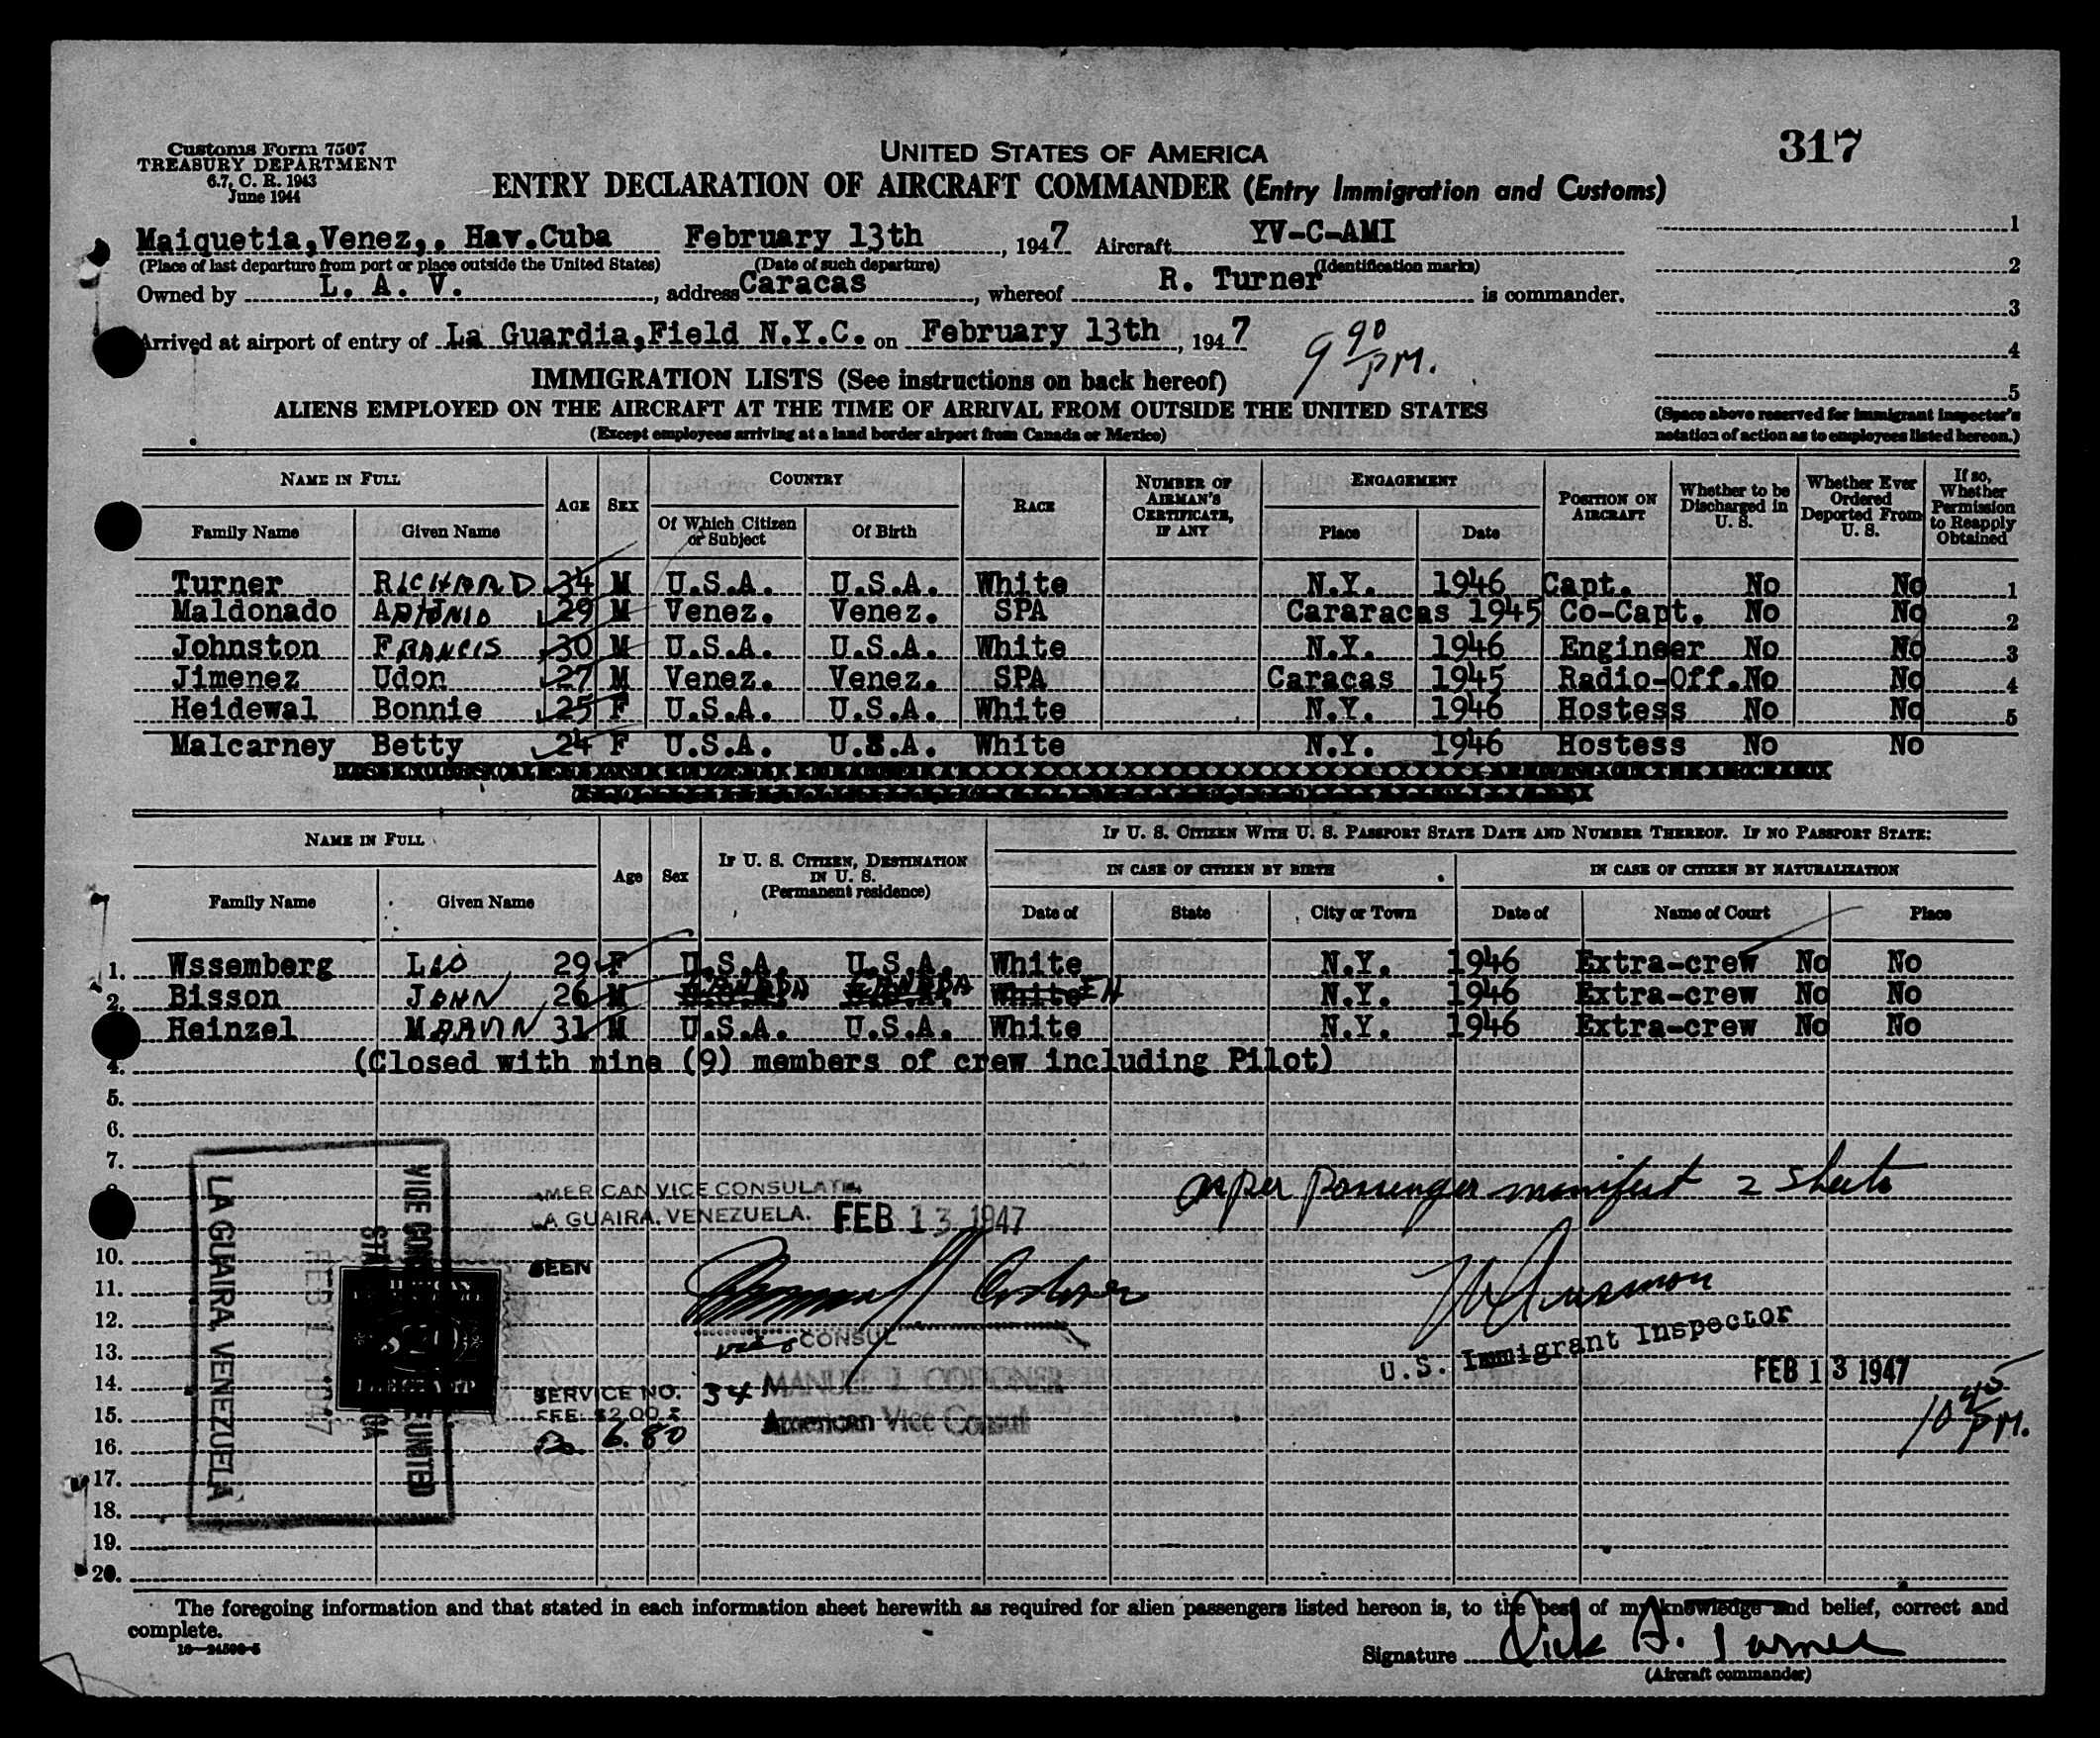 317
Customs Form 7507
TREASURY DEPARTMENT
6.7, C. R. 1943
June 1944
UNITED STATES OF AMERICA
ENTRY DECLARATION OF AIRCRAFT COMMANDER (Entry Immigration and Customs)
Maiquetia,Venez,. Hav.Cuba February 13th, 1947 Aircraft YV-C-AMI 1
(Place of last departure from port or place outside the United States) (Date of such departure) (Identification marks) 2
Owned by L. A. V., address Caracas, whereof R. Turner is commander.
3
Arrived at airport of entry of La Guardia,Field N.Y.C. on February 13th, 1947 PM.
4
IMMIGRATION LISTS (See instructions on back hereof)
5
ALIENS EMPLOYED ON THE AIRCRAFT AT THE TIME OF ARRIVAL FROM OUTSIDE THE UNITED STATES
(Except employees arriving at a land border airport from Canada or Mexico)
(Space above reserved for immigrant inspector's
notation of action as to employees listed hereon.)
NAME IN FULL AGE SEX COUNTRY RACE NUMBER OF AIRMAN'S CERTIFICATE, IF ANY ENGAGEMENT POSITION ON AIRCRAFT Whether to be Discharged in U. S. Whether Ever Ordered Deported From U. S. If so, Whether Permission to Reapply Obtained
Family Name Given Name Of Which Citizen or Subject Of Birth Place Date
Turner RICHARD 34 M U.S.A. U.S.A. White N.Y. 1946 Capt. No No 1
Maldonado ANTONIO 29 M Venez. Venez. SPA Cararacas 1945 Co-Capt. No No 2
Johnston FRANCIS 30 M U.S.A. U.S.A. White N.Y. 1946 Engineer No No 3
Jimenez Udon 27 M Venez. Venez. SPA Caracas 1945 Radio-Off. No No 4
Heidewal Bonnie 25 F U.S.A. U.S.A. White N.Y. 1946 Hostess No No 5
Malcarney Betty 24 F U.S.A. U.S.A. White N.Y. 1946 Hostess No No
NAME IN FULL Age Sex IF U. S. CITIZEN, DESTINATION IN U. S. (Permanent residence) IF U. S. CITIZEN WITH U. S. PASSPORT STATE DATE AND NUMBER THEREOF. IF NO PASSPORT STATE:
IN CASE OF CITIZEN BY BIRTH IN CASE OF CITIZEN BY NATURALIZATION
Family Name Given Name Date of State City or Town Date of Name of Court Place
1. Wssemberg LEO 29 F U.S.A. U.S.A. White N.Y. 1946 Extra-crew No No
2. Bisson JOHN 26 M CANADA CANADA White N.Y. 1946 Extra-crew No No
Heinzel MARVIN 31 M U.S.A. U.S.A. White N.Y. 1946 Extra-crew No No
4. (Closed with nine (9) members of crew including Pilot)
5.
6.
7.
as per passenger manifest 2 sheets
AMERICAN VICE CONSULATE
LA GUAIRA, VENEZUELA. FEB 13 1947
10.
SEEN
11.
12.
vice CONSUL
13.
U.S. Immigrant Inspector
FEB 13 1947
14.
SERVICE NO. 34 MANUEL J. CODONER
15.
FEE: $2.00 = American Vice Consul
10 45 PM.
16.
Bs. 6.80
17.
18.
19.
20.
LA GUAIRA, VENEZUELA
FEB 13 1947
The foregoing information and that stated in each information sheet herewith as required for alien passengers listed hereon is, to the best of my knowledge and belief, correct and
complete.
16—24506-5
Signature Dick A. Turner
(Aircraft commander)